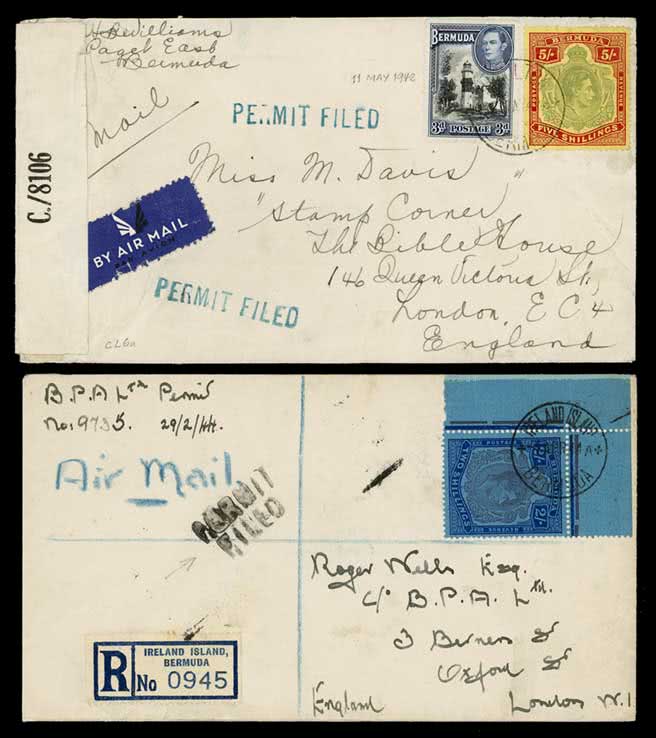 H. B. Williams
Paget East
Bermuda
Mail
11 MAY 1942
PERMIT FILED
BERMUDA
3d POSTAGE 3d
BERMUDA
5/- 5/-
POSTAGE REVENUE
FIVE SHILLINGS
C./8106
BY AIR MAIL
PAR AVION
Miss M. Davis
"Stamp Corner"
The Bible House
146 Queen Victoria St.,
London, E C 4
England
PERMIT FILED
CL6a
B.P.A Ltd Permit
No: 9735. 29/2/44.
Air Mail
PERMIT
FILED
IRELAND ISLAND
BERMUDA
BERMUDA
POSTAGE REVENUE
TWO SHILLINGS
2/- 2/-
Roger Wells Esq.
C/o B.P.A. Ltd.
3 Berners St
Oxford St
London W.1
England
R
IRELAND ISLAND,
BERMUDA
No 0945